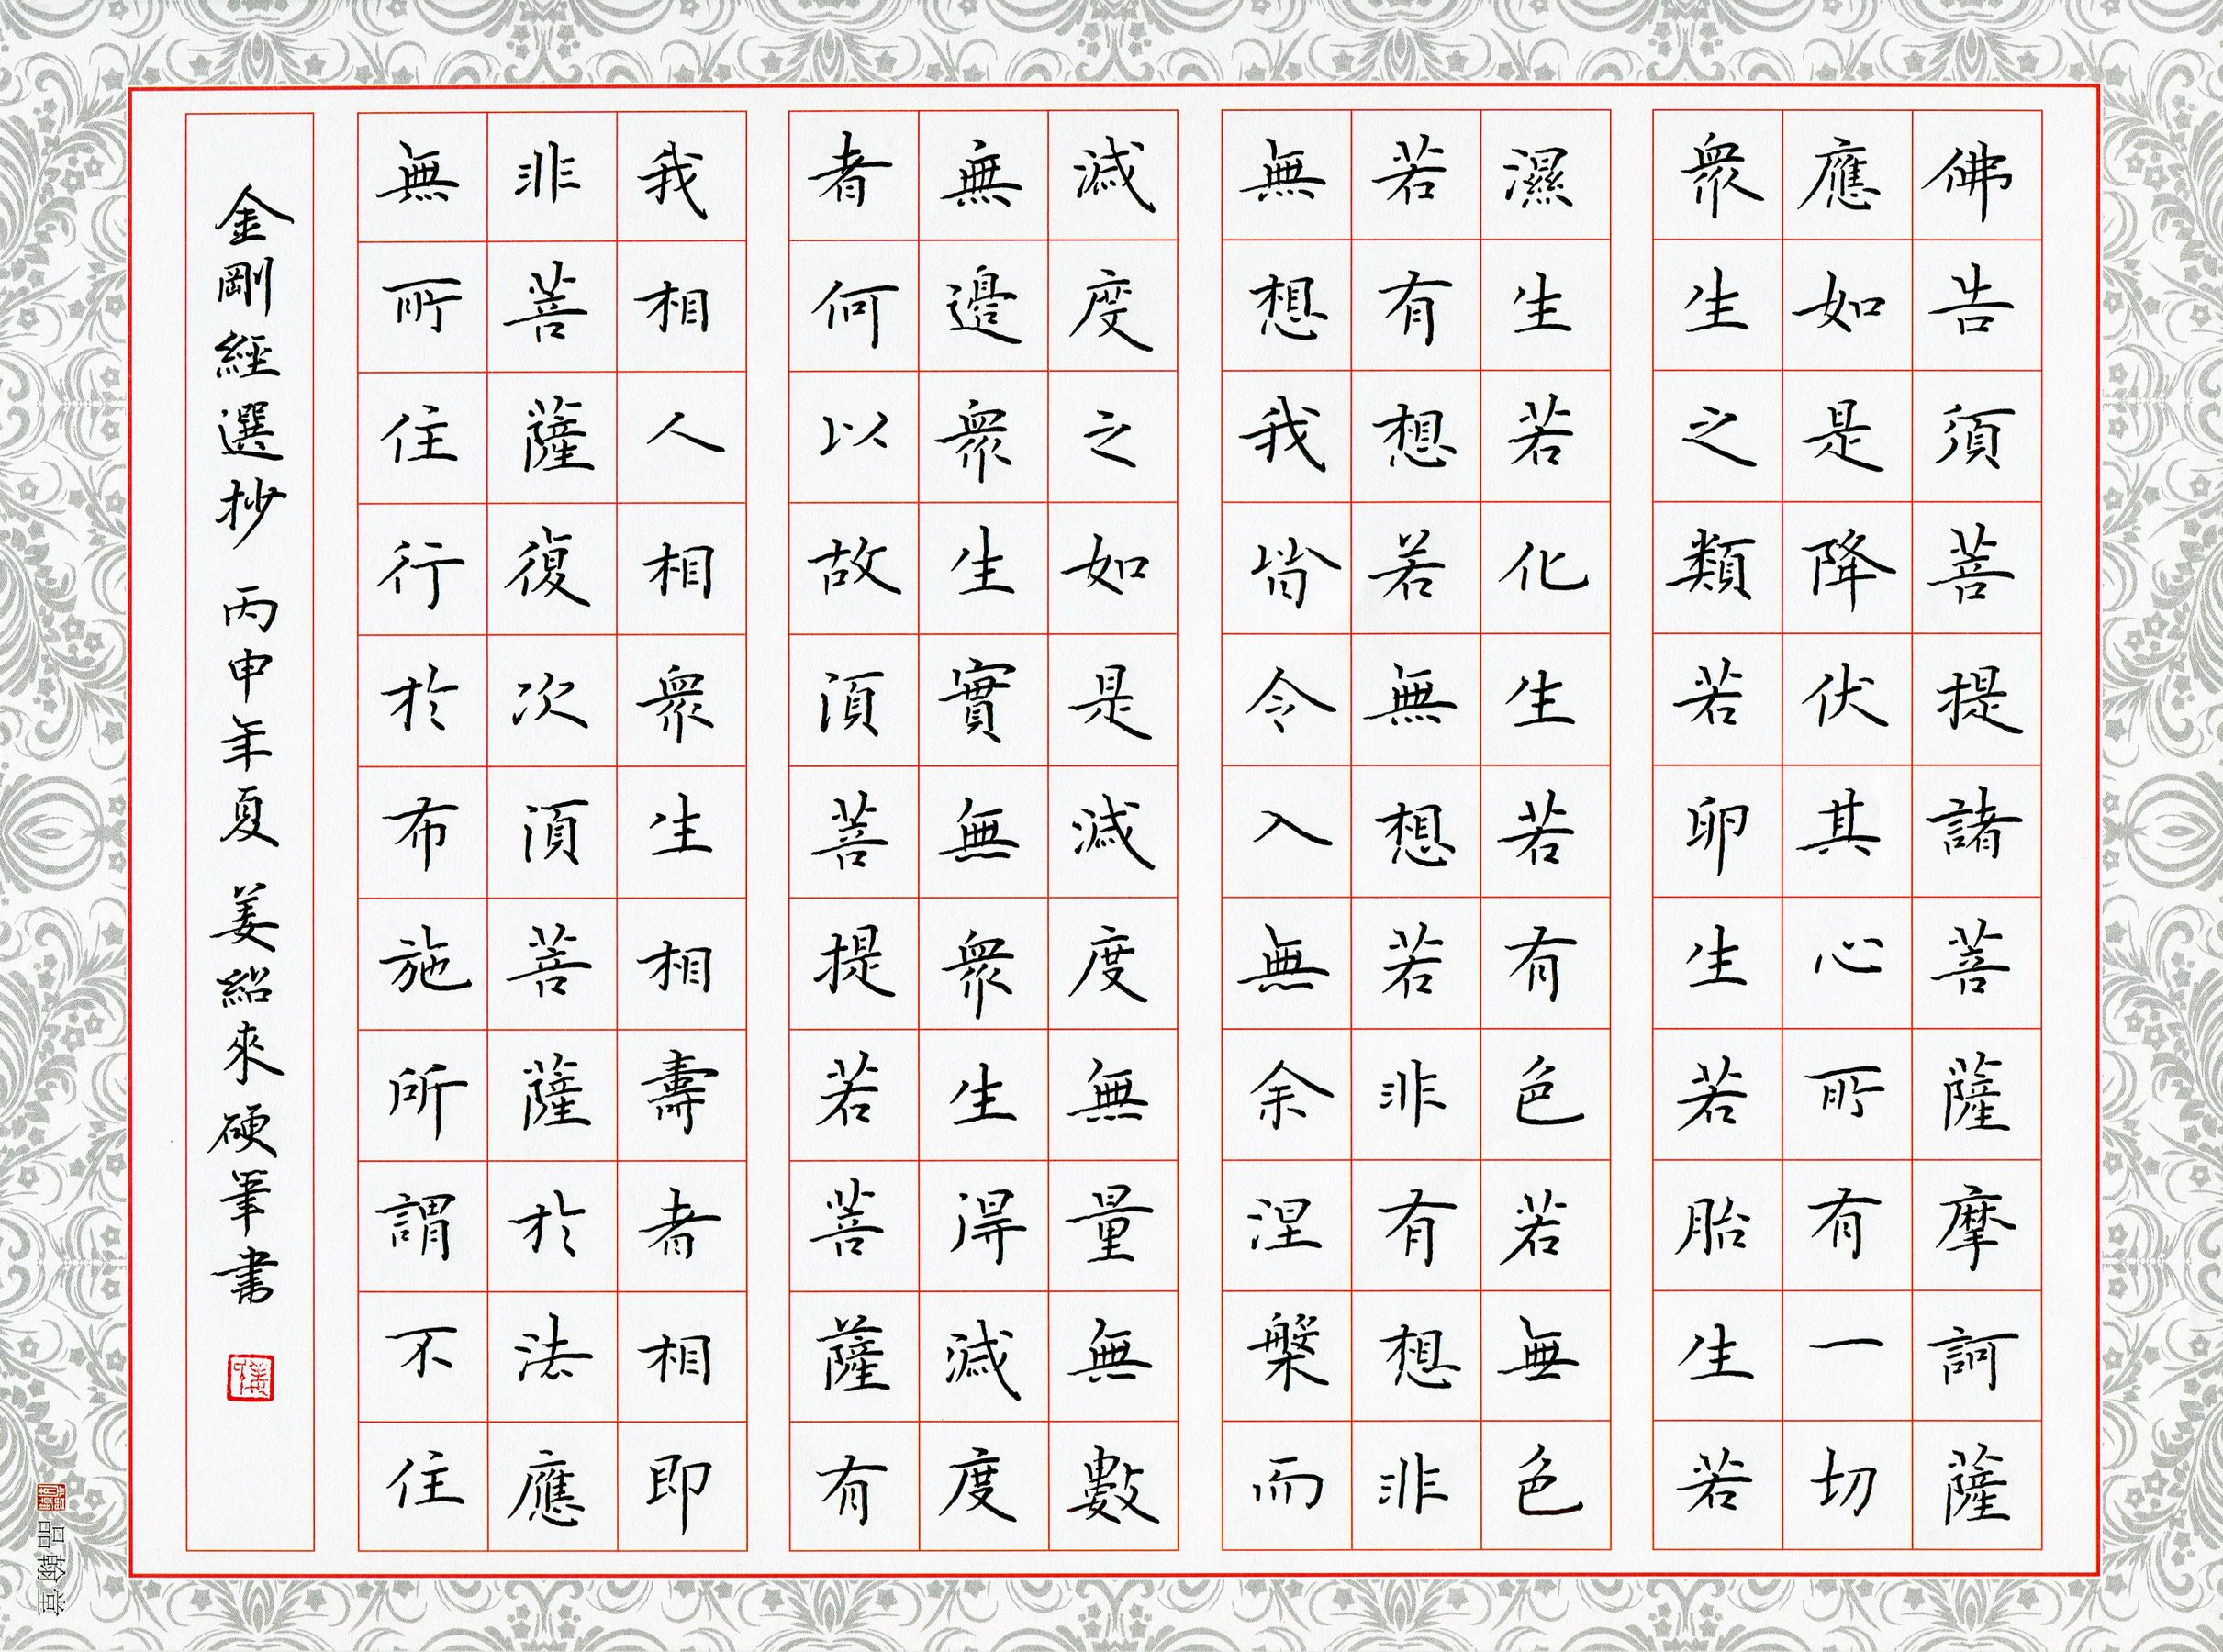 佛告須菩提諸菩薩摩訶薩
應如是降伏其心所有一切
衆生之類若卵生若胎生若
濕生若化生若有色若無色
若有想若無想若非有想非
無想我皆令入無余涅槃而
滅度之如是滅度無量無數
無邊衆生實無衆生得滅度
者何以故須菩提若菩薩有
我相人相衆生相壽者相即
非菩薩復次須菩薩於法應
無所住行於布施所謂不住
金剛經選抄 丙申年夏 姜紹來硬筆書
品翰堂